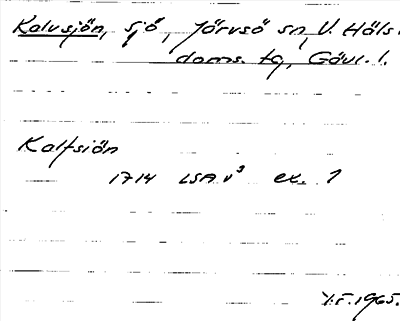 Kalvsjön, sjö, Järvsö sn, V. Häls.
doms. tg, Gävl. l.
Kalfsiön
1714 LSA v³ ex. 1
Y.F. 1965.